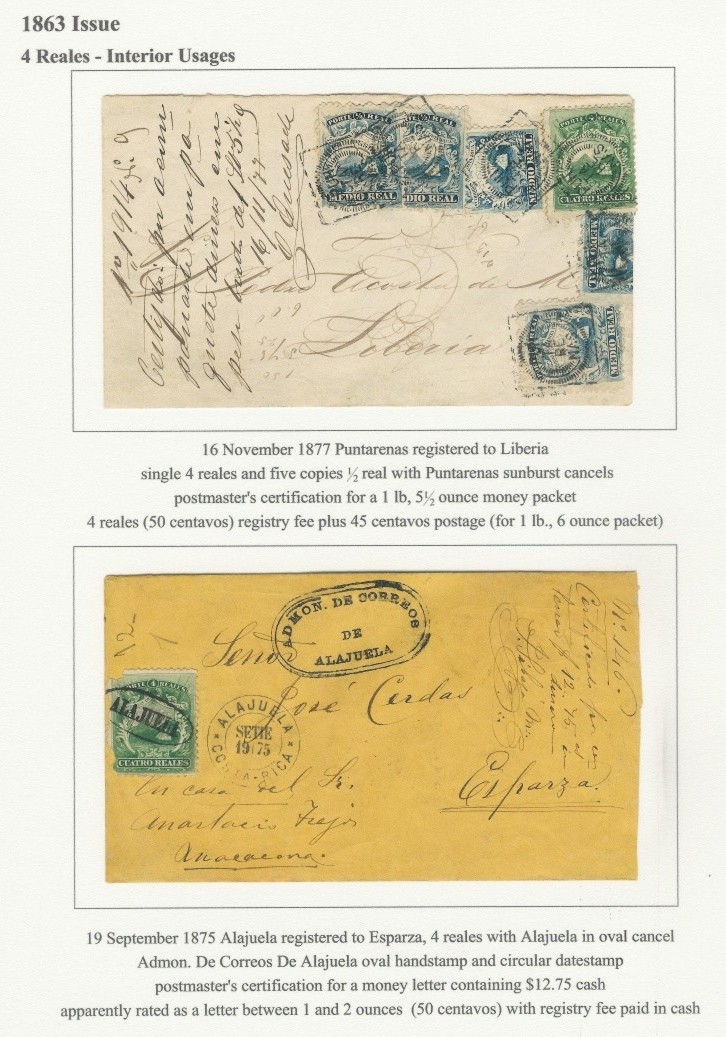 1863 Issue
4 Reales - Interior Usages
PORTE (½) REAL
MEDIO REAL
½ REAL
DIO REAL
MEDIO REAL
PORTE 4 REALES
CUATRO REALES
MEDIO REAL
MEDIO REAL
No 1914
Certificado
16/11/77
Quesada
Pedro Acosta de M.
Liberia
16 November 1877 Puntarenas registered to Liberia
single 4 reales and five copies ½ real with Puntarenas sunburst cancels
postmaster's certification for a 1 lb, 5½ ounce money packet
4 reales (50 centavos) registry fee plus 45 centavos postage (for 1 lb., 6 ounce packet)
ADMON. DE CORREOS
DE
ALAJUELA
12-
No. 1146.
Certificada
$ 12.75
dinero
Señor
José Cerdas
PORTE 4 REALES
ALAJUELA
CUATRO REALES
ALAJUELA
SETIE
19 75
COSTA-RICA
En casa del Sr.
Anastacio Trejos
Esparza.
19 September 1875 Alajuela registered to Esparza, 4 reales with Alajuela in oval cancel
Admon. De Correos De Alajuela oval handstamp and circular datestamp
postmaster's certification for a money letter containing $12.75 cash
apparently rated as a letter between 1 and 2 ounces (50 centavos) with registry fee paid in cash